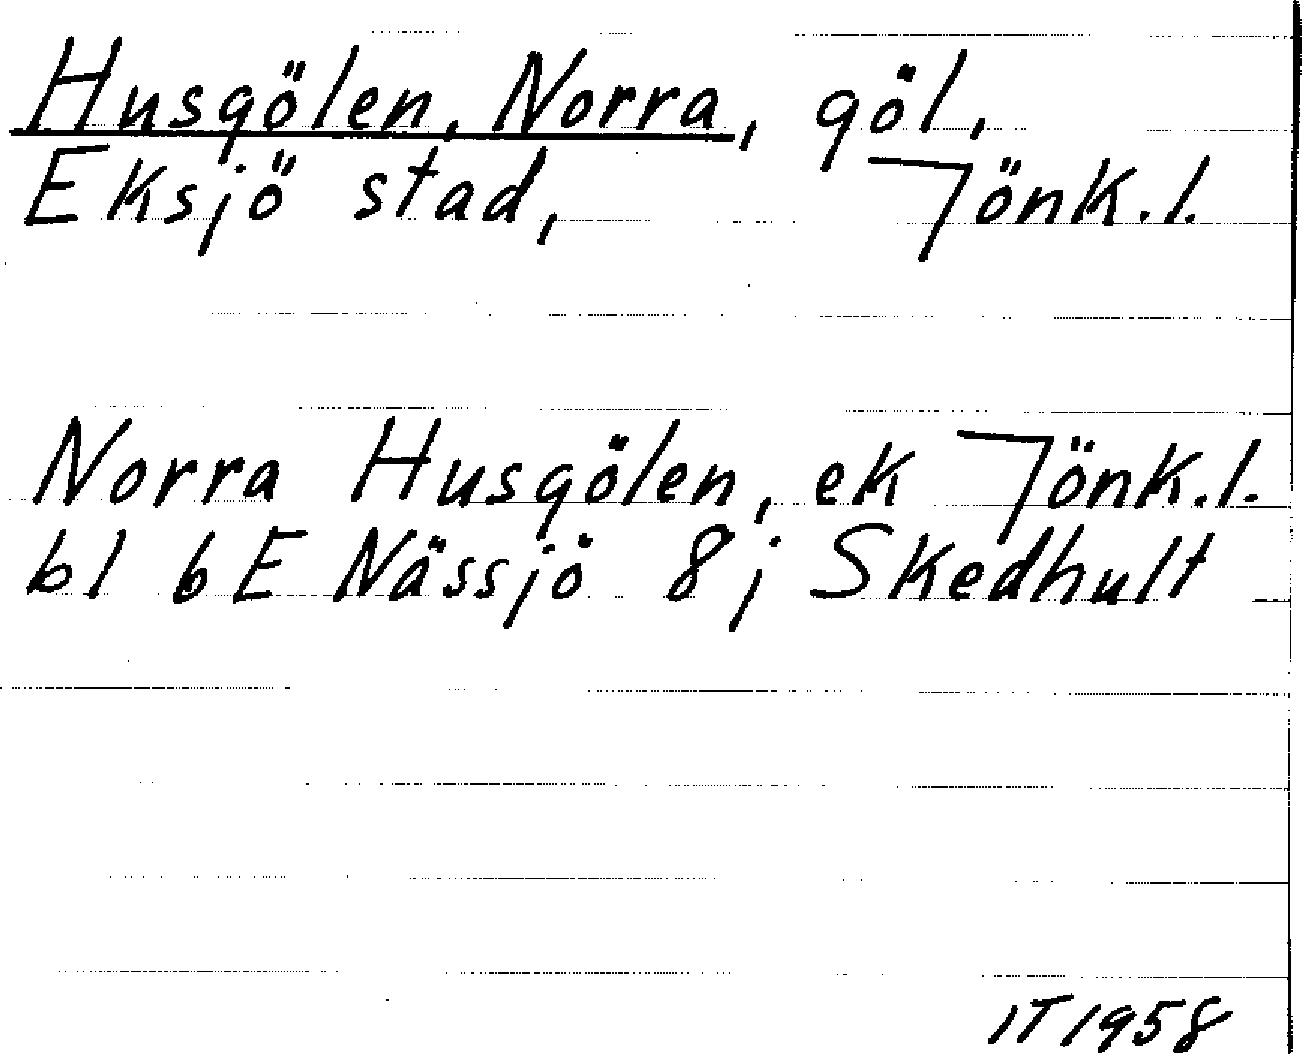 Husgölen, Norra, göl,
Eksjö stad, Jönk.l.
Norra Husgölen, ek Jönk.l.
bl 6E Nässjö 8j Skedhult
IT 1958